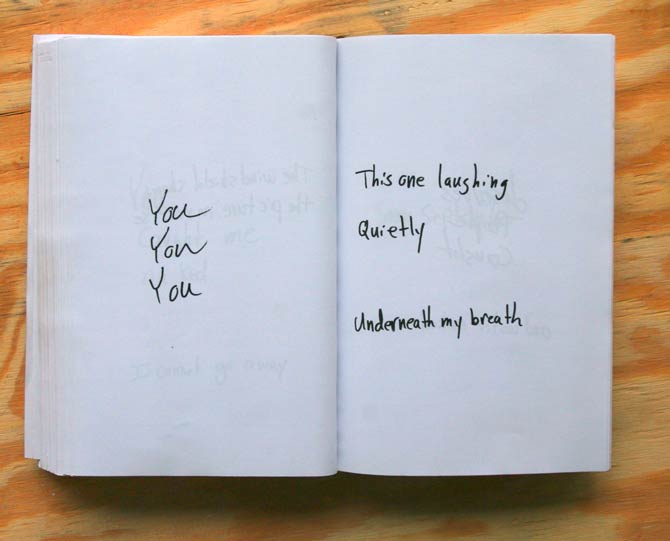 You
You
You
This one laughing
Quietly
Underneath my breath